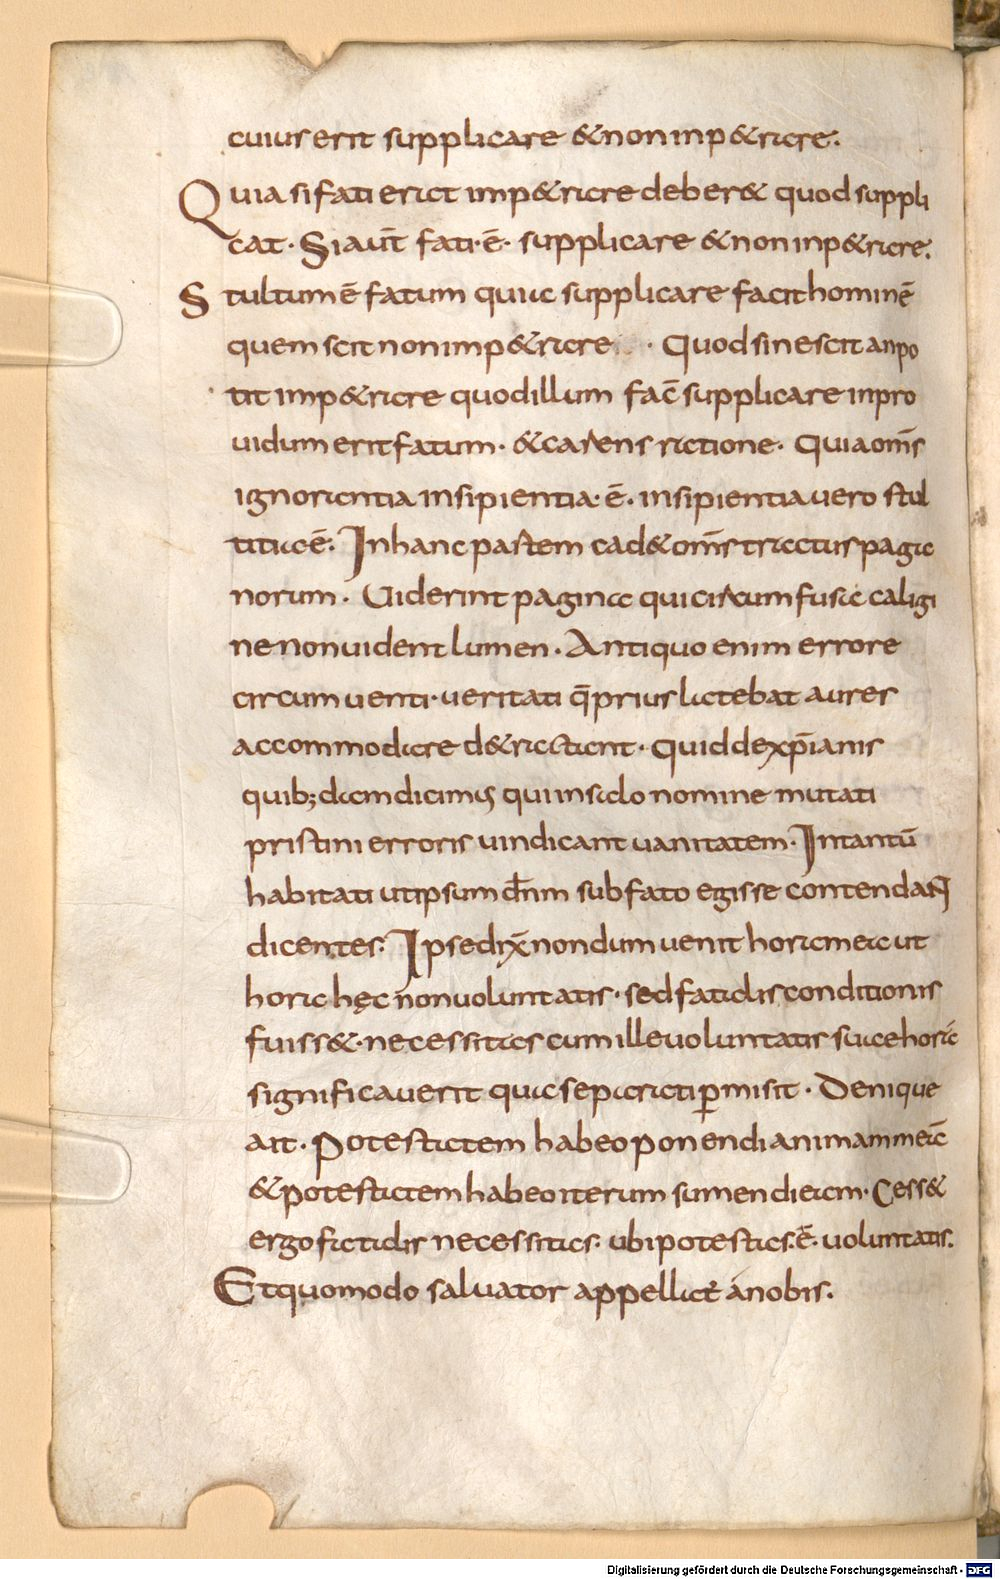 cuius erit supplicare & non inp&rare.
Quia si fati erat imp&rare deber& quod suppli
cat. Si aut̄ fati. ē. supplicare & non inp&rare.
Stultum ē fatum quia supplicare facit hominē
quem scit non imp&rare. Quod si nescit an po
tit imp&rare quod illum fac̄ supplicare inpro
uidum erit fatum. & carens ratione. Quia om̄s
ignorantia insipientia. ē. insipientia uero stul
titia ē. In hanc partem cad& om̄s tractus paga
norum. Uiderint paginae qui circumfusae caligi
ne non uident lumen. Antiquo enim errore
circumuenti. ueritati q̄ prius latebat aures
accommodare d&ractant. Quid de xp̄ianis
quib; dam dicimus qui in solo nomine mutati
pristini erroris uindicant uanitatem. In tantū
habitati ut ipsum dn̄m sub fato egisse contendant
dicentes. Ipse dix̄ nondum uenit hora mea ut
hora hęc non uoluntatis. sed fatalis conditionis
fuiss&. necessitas cum ille uoluntatis suae horā
significauerit qua se pro rati p̄misit. Denique
ait. Potestatem habeo ponendi animam meā
& potestatem habeo iterum sumendi eam. Cess&
ergo fatalis necessitas. ubi potestas. ē. uoluntatis.
Et quomodo saluator appellat̄ a nobis.
Digitalisierung gefördert durch die Deutsche Forschungsgemeinschaft - DFG